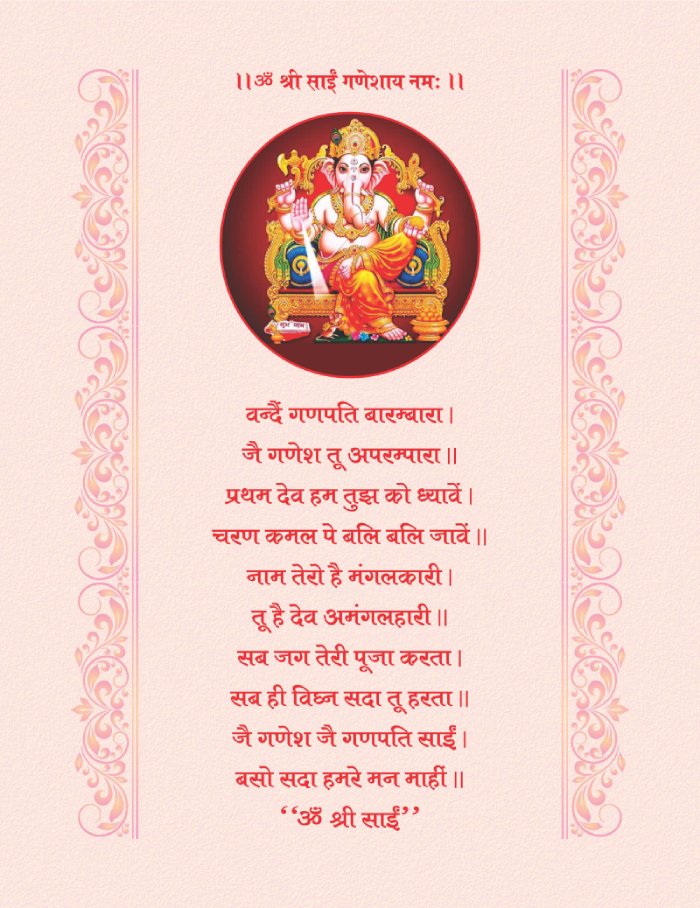 ।।ॐ श्री साईं गणेशाय नमः ।।
शुभ लाभ
वन्दैं गणपति बारम्बारा।
जै गणेश तू अपरम्पारा॥
प्रथम देव हम तुझ को ध्यावें।
चरण कमल पे बलि बलि जावें॥
नाम तेरो है मंगलकारी।
तू है देव अमंगलहारी॥
सब जग तेरी पूजा करता।
सब ही विघ्न सदा तू हरता॥
जै गणेश जै गणपति साईं।
बसो सदा हमरे मन माहीं॥
‘‘ॐ श्री साईं’’